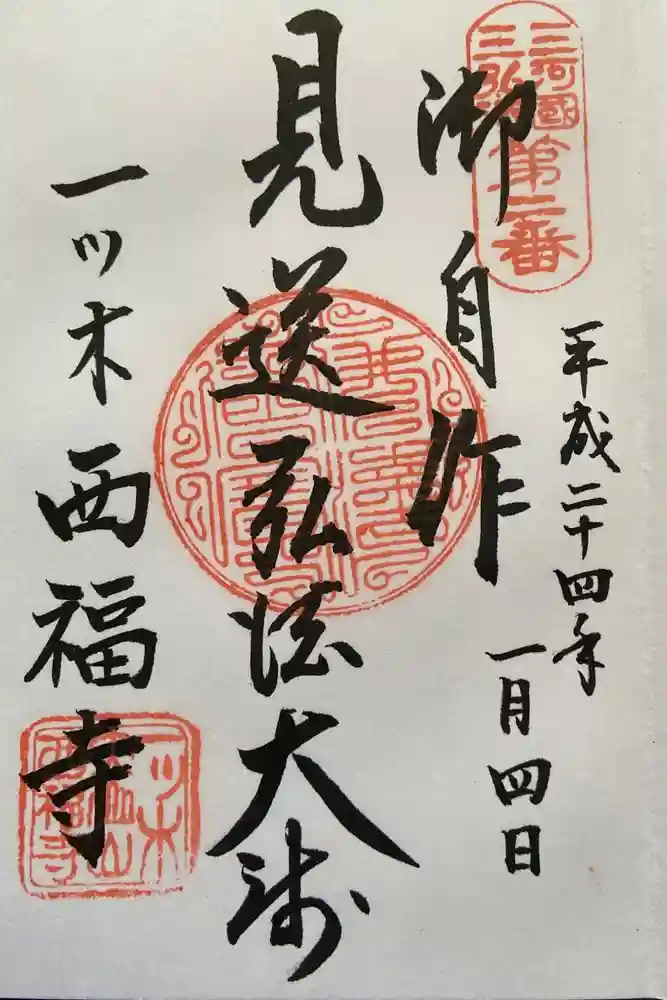 三河國
三弘法
第二番
平成二十四年
一月四日
御自作
見送弘法大師
一ッ木西福寺
一ッ木
西福寺